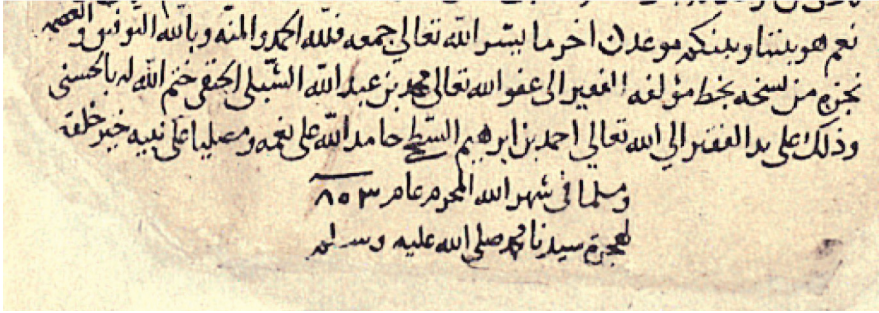 نعم هو بيننا وبينكم موعدن اخر ما يسر الله تعالي جمعه فلله الحمد والمنه وبالله التوفيق والعصمه
نجزه من نسخه بخط مؤلفه الفقير الى عفو الله تعالى محمد بن عبد الله الشبلى الحنفى ختم الله له بالحسنى
وذلك على يد الفقير الي الله تعالي احمد بن ابرهيم حامد الله على نعمه ومصليا على نبيه خير خلقه
ومسلما فى شهر الله المحرم عام ٨٥٣
لهجرة سيدنا محمد صلى الله عليه وسلم